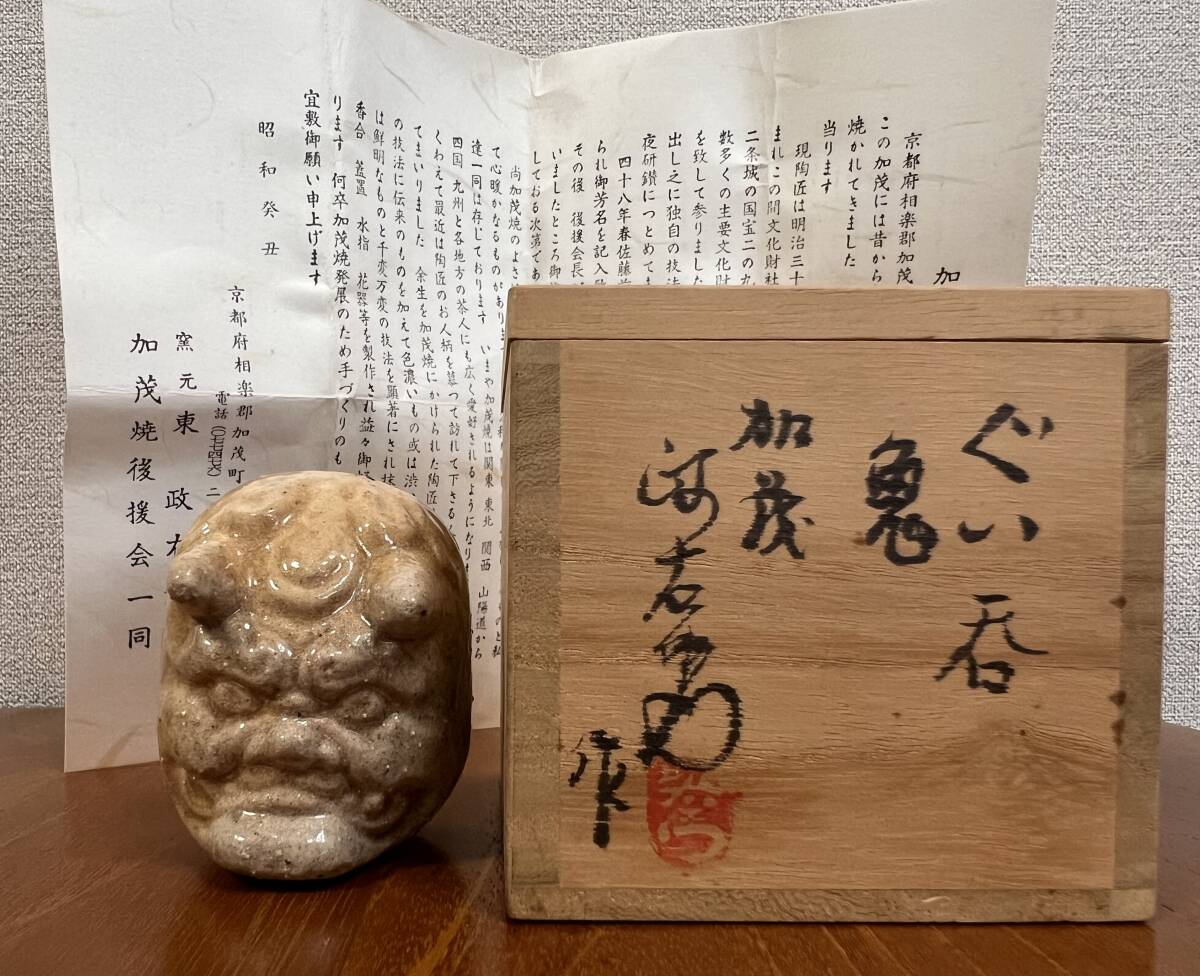 加
京都府相楽郡加茂
この加茂には昔から
焼かれてきました
当ります
現陶匠は明治三十
まれこの間文化財社
二条城の国宝二の丸
数多くの主要文化財
を致して参りました
出し之に独自の技法
夜研鑽につとめてま
四十八年春佐藤前
られ御芳名を記入
その後 後援会長
いましたところ御
しておる次第であ
尚加茂焼のよさ
て心暖かなるものがありま
達一同は存じております いまや加茂焼は関東 東北 関西 山陽道から
四国 九州と各地方の茶人にも広く愛好されるようになりま
くわえて最近は陶匠のお人柄を慕つて訪れて下さる
てまいりました 余生を加茂焼にかけられた陶匠
の技法に伝来のものを加えて色濃いもの或は渋
は鮮明なものと千変万変の技法を顕著にされ抹
香合 蓋置 水指 花器等を製作され益々御
ります 何卒加茂焼発展のため手づくりのも
宜敷御願い申上げます
昭和癸丑
京都府相楽郡加茂町
電話
窯元 東 政
加茂焼後援会一同
ぐい呑
鬼
加茂
作